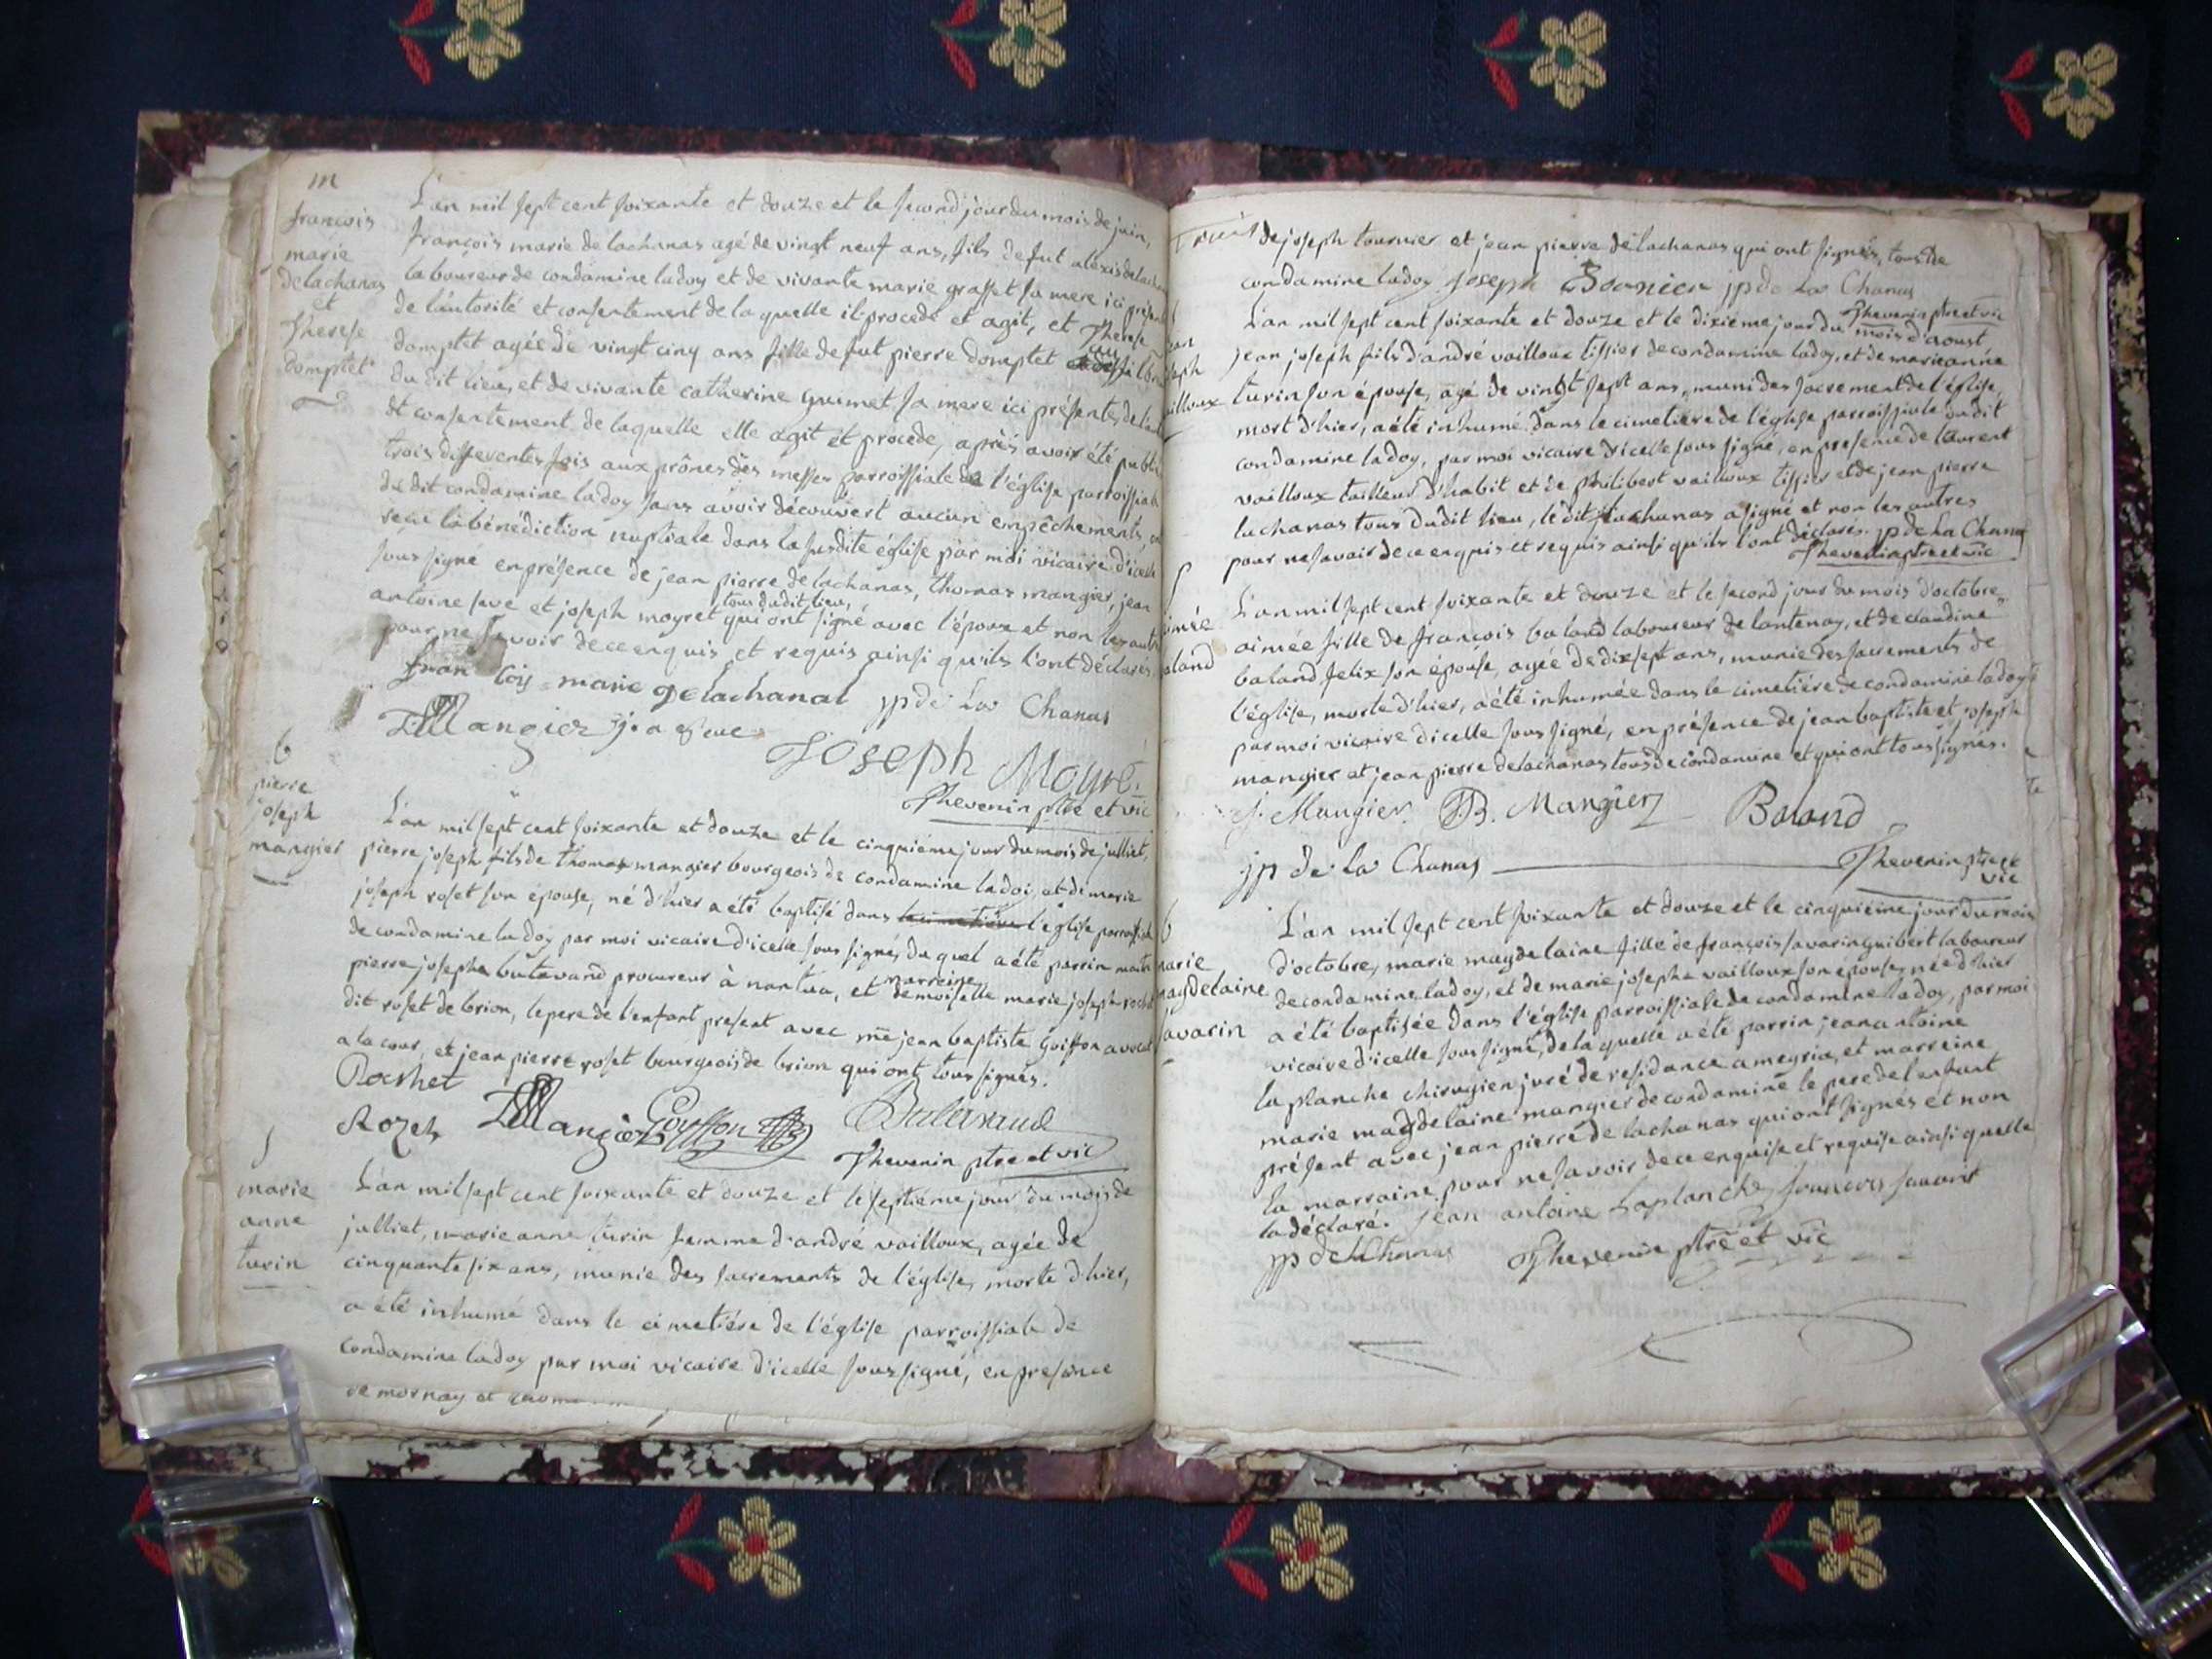 m
francois
marie
delachanas
et
Therese
Domptet
L'an mil sept cent soixante et douze et le second jour du mois de juin,
françois marie delachanas agé de vingt neuf ans, fils de fut alexis delachanas
laboureur de condamine ladoy et de vivante marie grasset sa mere ici présente
de l'autorité et consentement de laquelle il procede et agit, et Therese
domptet agée de vingt cinq ans fille de fut pierre domptet
du dit lieu, et de vivante catherine guimet sa mere ici présente, de
et consentement de laquelle elle agit et procede, après avoir été
trois differentes fois aux prônes des messes parroissiale de l'église parroissiale
du dit condamine ladoy sans avoir découvert aucun empêchements,
recu la bénédiction nuptiale dans la susdite église par moi vicaire d'icelle
sous signé en présence de jean pierre delachanas, thomas mangier, jean
antoine seve et joseph moyret tous dudit lieu, qui ont signé avec l'époux et non les autres
pour ne savoir de ce enquis et requis ainsi qu'ils l'ont déclarés
fran çois marie delachanal jp de La Chanas
T Mangier j. a Seve
Joseph Moyret
Thevenin ptre et vic
b
pierre
joseph
mangier
L'an mil sept cent soixante et douze et le cinquième jour du mois de julliet,
pierre joseph fils de thomas mangier bourgeois de condamine ladoy, et de marie
joseph roset son épouse, né d'hier a été baptisé dans le cimetière l'église parroissiale
de condamine ladoy par moi vicaire d'icelle sous signé, du quel a été parrin
pierre joseph butavand procureur à nantua, et marreine demoiselle marie joseph rochet
dit roset de brion, le pere de l'enfant present avec me jean baptiste Goiffon avocat
a la cour, et jean pierre roset bourgeois de brion qui ont tous signés.
Rochet
Rozet T Mangier Goyffon Butavand
Thevenin ptre et vic
S
marie
anne
turin
L'an mil sept cent soixante et douze et le septième jour du mois de
julliet, marie anne turin femme d'andré vailloux, agée de
cinquante six ans, munie des sacrements de l'église, morte d'hier,
a été inhumé dans le cimetiére de l'église parroissiale de
condamine ladoy par moi vicaire d'icelle sous signé, en presence
de mornay et
de joseph tournier et jean pierre de lachanas qui ont signés, tous de
condamine ladoy Joseph Tournier jp de La Chanas
Thevenin ptre et vic
L'an mil sept cent soixante et douze et le dixiéme jour du mois d'aoust
jean joseph fils d'andré vailloux tissier de condamine ladoy, et de marie anne
turin son épouse, agé de vingt sept ans, muni des sacrement de l'église,
mort d'hier, a été inhumé dans le cimetiére de l'église parroissiale du dit
condamine ladoy, par moi vicaire d'icelle sous signé, en presence de laurent
vailloux tailleur d'habit et de philibert vailloux tissier et de jean pierre
lachanas tous dudit lieu, le dit lachanas a signé et non les autres
pour ne savoir de ce enquis et requis ainsi qu'ils l'ont déclarés. jp de La Chanas
Thevenin ptre et vic
S
aimée
baland
L'an mil sept cent soixante et douze et le second jour du mois d'octobre,
aimée fille de françois baland laboureur de lantenay, et de claudine
baland felix son épouse, agée de dix sept ans, munie des sacrements de
l'église, morte d'hier, a été inhumée dans le cimetiére de condamine ladoy
par moi vicaire d'icelle sous signé, en présence de jean baptiste et joseph
mangier et jean pierre delachanas tous de condamine et qui ont tous signés.
J. Mangier JB. Mangier Baland
jp de La Chanas Thevenin ptre et
vic
b
marie
magdelaine
savarin
L'an mil sept cent soixante et douze et le cinquiéme jour du mois
d'octobre, marie magdelaine fille de françois savarin guibert laboureur
de condamine ladoy, et de marie josephe vailloux son épouse, née d'hier
a été baptisée dans l'église parroissiale de condamine ladoy, par moi
vicaire d'icelle sous signé, de la quelle a été parrin jean antoine
la planche chirugien juré de residance a megria, et marreine
marie magdelaine mangier de condamine le pere de l'enfant
présent avec jean pierre de lachanas qui ont signés et non
la marraine pour ne savoir de ce enquise et requise ainsi quelle
la déclaré. Jean antoine Laplanche francois savarin
jp de La Chanas Thevenin ptre et vic